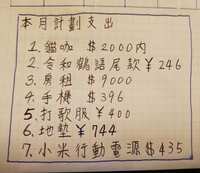 本月計劃支出
1. 貓咖 $2000內
2. 令和鶴語尾款¥246
3. 房租 $9000
4. 手機 $396
5. 打歌服¥400
6. 地墊¥744
7. 小米行動電源$435